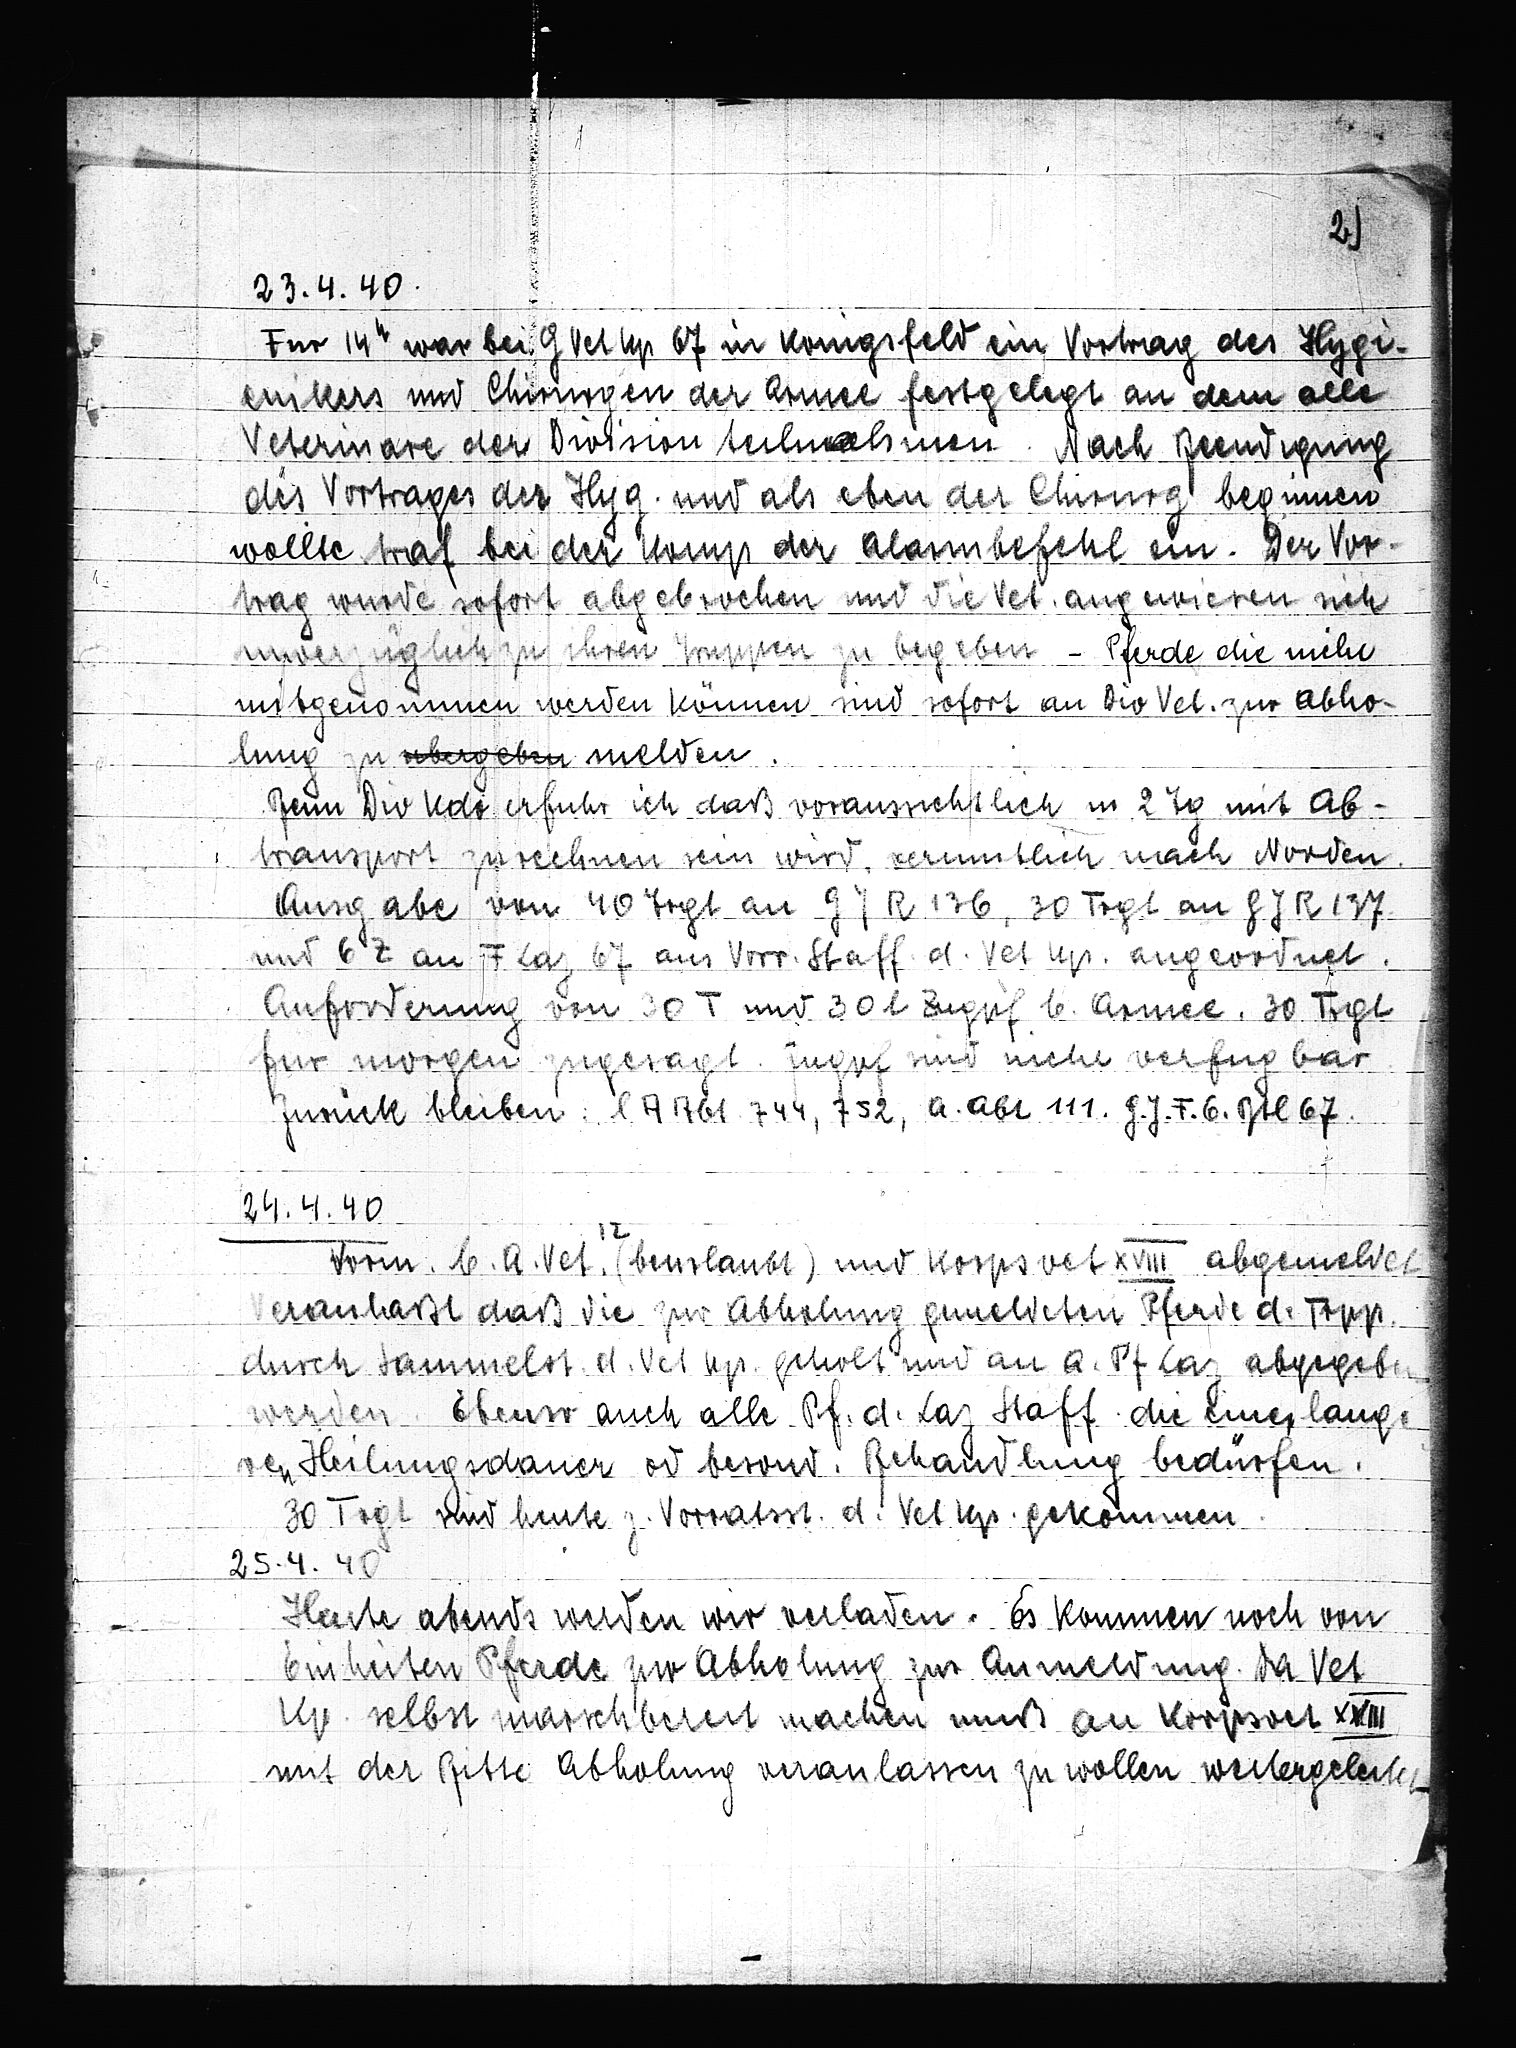 2)
23.4.40.
Für 14h war bei G Vet Kp 67 in Königsfeld ein Vortrag des Hygi-
enikers und Chirurgen der Armee festgelegt an dem alle
Veterinäre der Division teilnahmen. Nach Beendigung
des Vortrages der Hyg. und als eben der Chirurg beginnen
wollte traf bei der Komp der Alarmbefehl ein. Der Vor-
trag wurde sofort abgebrochen und die Vet. angewiesen sich
unverzüglich zu ihren Truppen zu begeben - Pferde die nicht
mitgenommen werden können sind sofort an Div Vet. zur Abho-
lung zu übergeben melden.
Beim Div Kdo erfuhr ich daß voraussichtlich in 2 Tg mit Ab-
transport zu rechnen sein wird, vermutlich nach Norden.
Ausgabe von 40 Trgt an G J R 136, 30 Trgt an G J R 137
und 6 Z an F Laz 67 aus Vorr. Staff. d. Vet Kp. angeordnet.
Anforderung von 30 T und 30 l Zugpf b. Armee. 30 Trgt
für morgen zugesagt. Zugpf sind nicht verfügbar.
Zurück bleiben: l A Abt 744, 752, A. Abt 111. G.J.F.E. Btl 67.
24.4.40
Vorm. b. A. Vet. 12 (beurlaubt) und Korpsvet XVIII abgemeldet
Veranlaßt daß die zur Abholung gemeldeten Pferde d. Trpp.
durch Sammelst. d. Vet Kp. geholt und an A. Pf Laz abgegeben
werden. Ebenso auch alle Pf. d. Laz Staff. die einer lange
ren Heilungsdauer od besond. Behandlung bedürfen.
30 Trgt sind heute z. Vorratsst. d. Vet Kp. gekommen.
25.4.40
Heute abends werden wir verladen. Es kommen noch von
Einheiten Pferde zur Abholung zur Anmeldung. Da Vet
Kp. selbst marschbereit machen muß an Korpsvet XVIII
mit der Bitte Abholung veranlassen zu wollen weitergeleitet